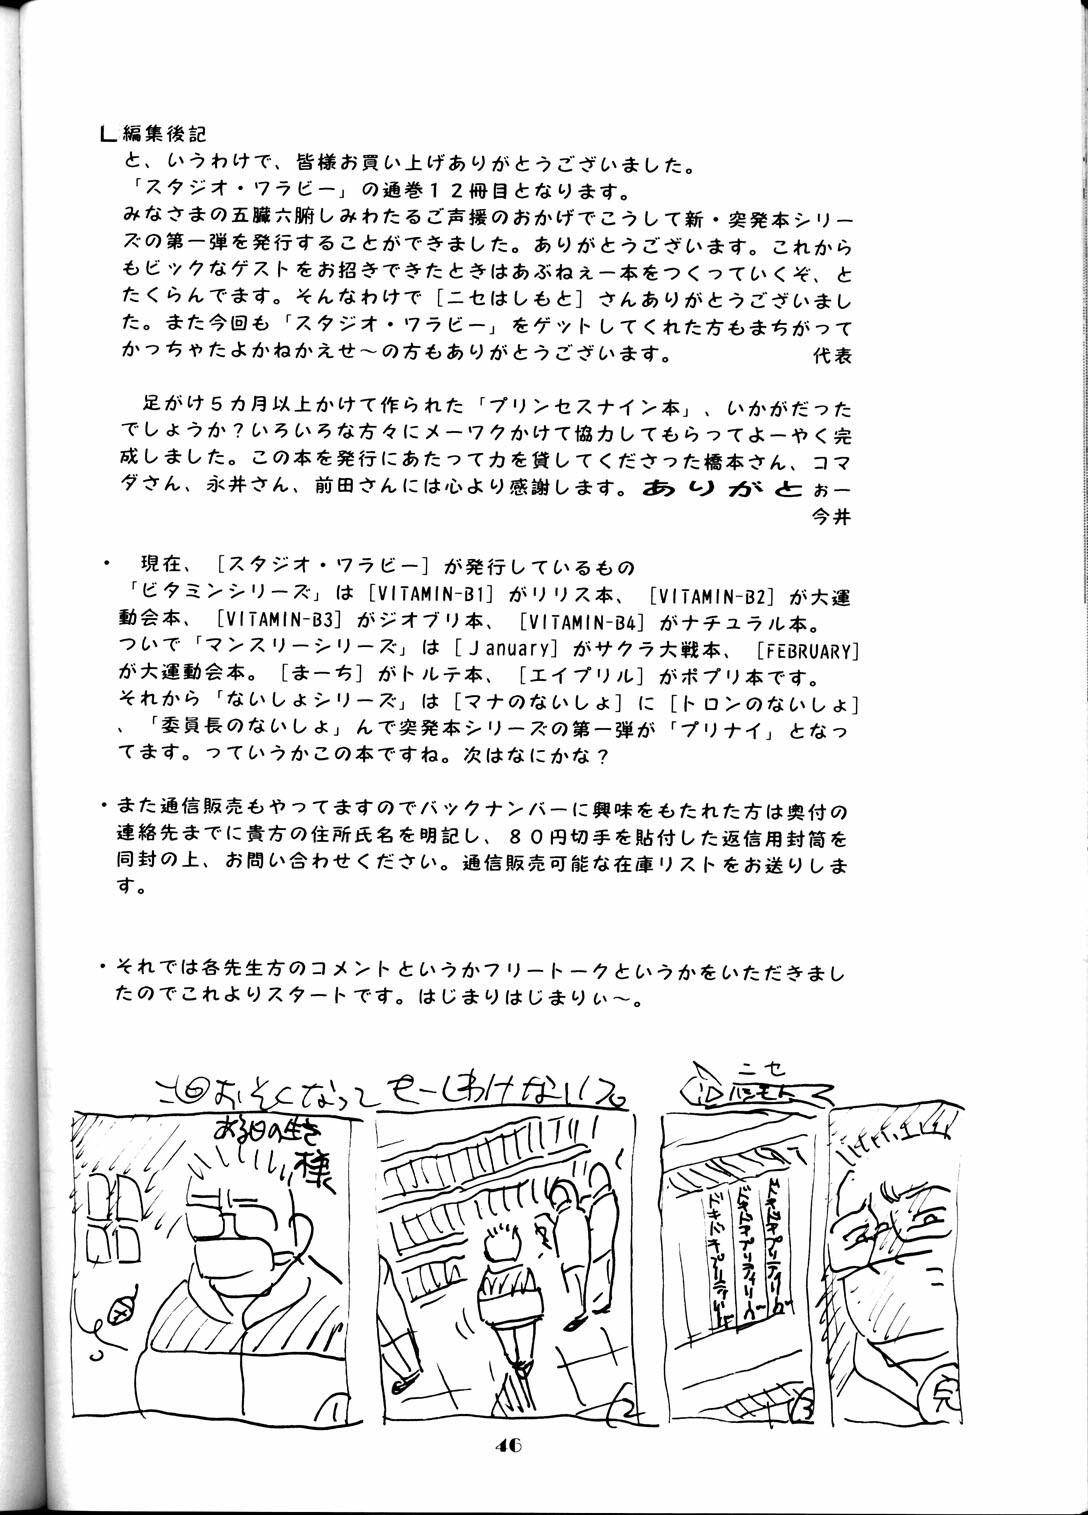 編集後記
と、いうわけで、皆様お買い上げありがとうございました。
「スタジオ・ワラビー」の通巻１２冊目となります。
みなさまの五臓六腑しみわたるご声援のおかげでこうして新・突発本シリー
ズの第一弾を発行することができました。ありがとうございます。これから
もビックなゲストをお招きできたときはあぶねぇー本をつくっていくぞ、と
たくらんでます。そんなわけで［ニセはしもと］さんありがとうございまし
た。また今回も「スタジオ・ワラビー」をゲットしてくれた方もまちがって
かっちゃたよかねかえせ～の方もありがとうございます。　代表
足がけ５カ月以上かけて作られた「プリンセスナイン本」、いかがだった
でしょうか？いろいろな方々にメーワクかけて協力してもらってよーやく完
成しました。この本を発行にあたって力を貸してくださった橋本さん、コマ
ダさん、永井さん、前田さんには心より感謝します。ありがとぉー
今井
・　現在、［スタジオ・ワラビー］が発行しているもの
「ビタミンシリーズ」は［VITAMIN-B1］がリリス本、［VITAMIN-B2］が大運
動会本、［VITAMIN-B3］がジオブリ本、［VITAMIN-B4］がナチュラル本。
ついで「マンスリーシリーズ」は［January］がサクラ大戦本、［FEBRUARY］
が大運動会本。［まーち］がトルテ本、［エイプリル］がポプリ本です。
それから「ないしょシリーズ」は［マナのないしょ］に［トロンのないしょ］
、「委員長のないしょ」んで突発本シリーズの第一弾が「プリナイ」となっ
てます。っていうかこの本ですね。次はなにかな？
・また通信販売もやってますのでバックナンバーに興味をもたれた方は奥付の
連絡先までに貴方の住所氏名を明記し、８０円切手を貼付した返信用封筒を
同封の上、お問い合わせください。通信販売可能な在庫リストをお送りしま
す。
・それでは各先生方のコメントというかフリートークというかをいただきまし
たのでこれよりスタートです。はじまりはじまりぃ～。
ニセ
ハシモト
ある日の生き
様
1
2
ドキドキプリティリーグ
ドキドキプリティリーグ
ドキドキプリティリーグ
3
完
46